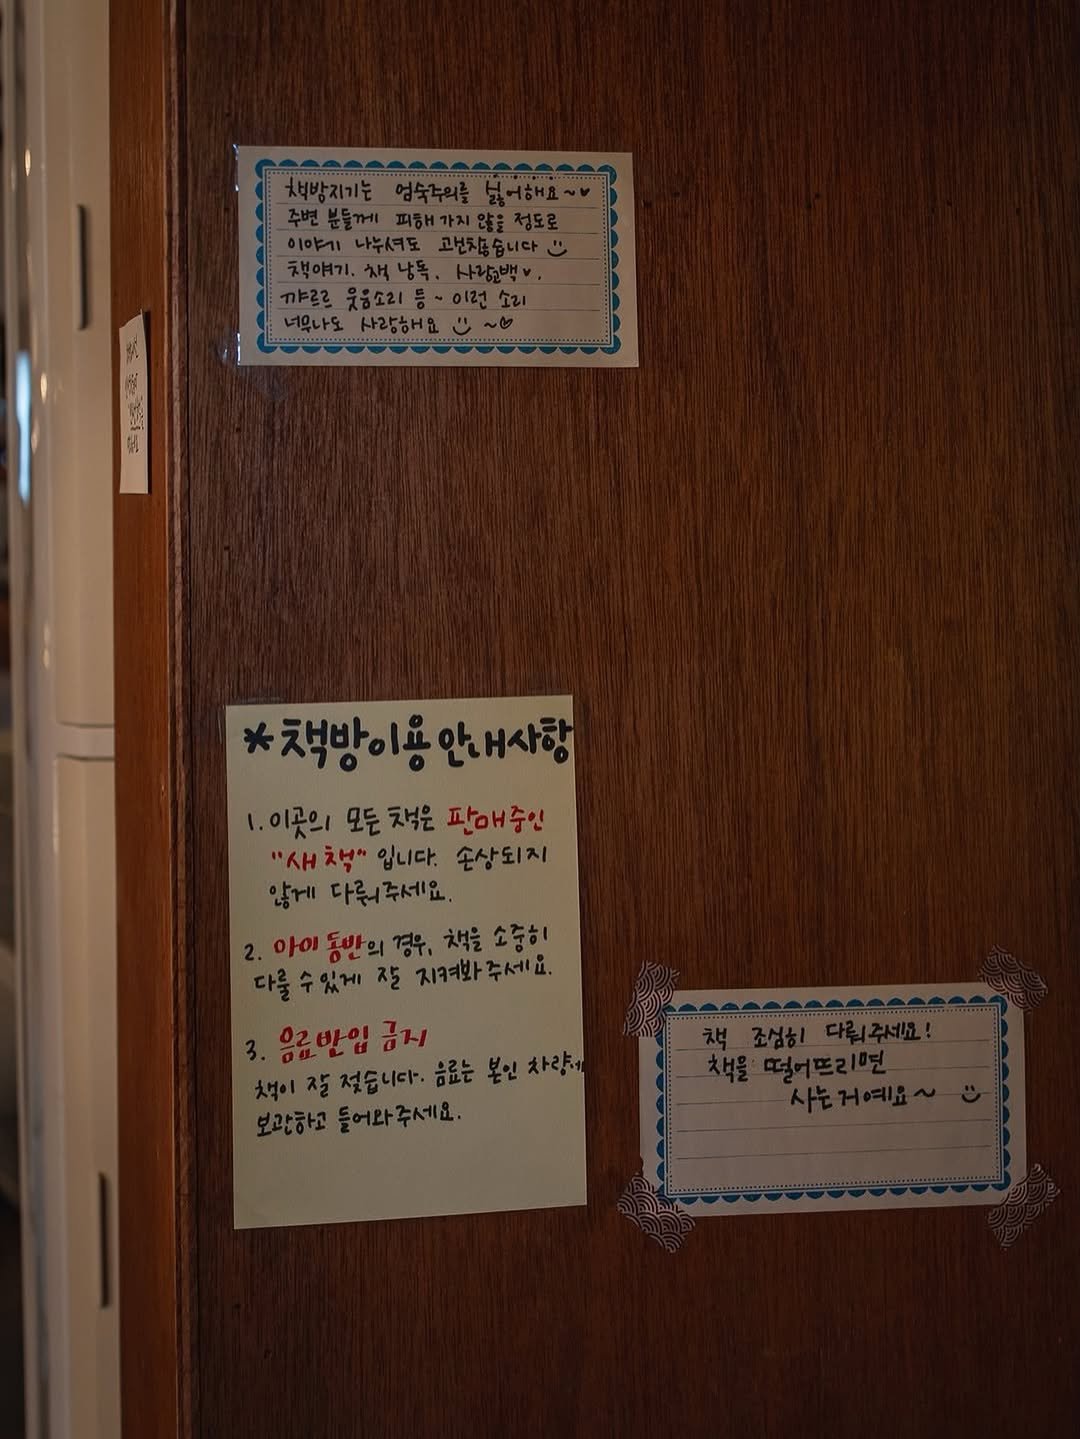 책방지기는 엄숙주의를 싫어해요~♥
주변 분들께 피해가지 않을 정도로
이야기 나누셔도 괜찮습니다 :)
책얘기. 책 낭독. 사랑고백♥.
꺄르르 웃음소리 등~ 이런 소리
너무나도 사랑해요 :) ~♡
*책방이용 안내사항
1. 이곳의 모든 책은 판매중인
"새 책" 입니다. 손상되지
않게 다뤄주세요.
2. 아이 동반의 경우, 책을 소중히
다룰 수 있게 잘 지켜봐주세요.
3. 음료반입 금지
책이 잘 젖습니다. 음료는 본인 차량에
보관하고 들어와주세요.
책 조심히 다뤄주세요!
책을 떨어뜨리면
사는거예요~ :)